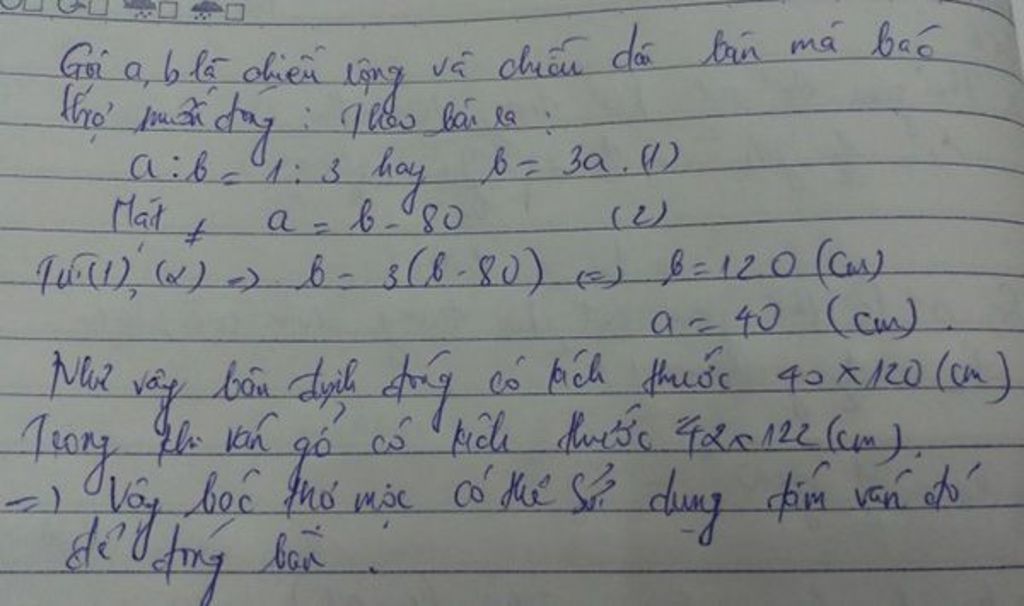 Gọi a, b là chiều rộng và chiều dài bàn mà bác
thợ muốn đóng : Theo bài ra :
a : b = 1 : 3 hay b = 3a. (1)
Mặt ≠ a = b - 80 (2)
Từ (1), (2) => b = 3(b - 80) <=> b = 120 (cm)
a = 40 (cm).
Như vậy bàn định đóng có kích thước 40 x 120 (cm)
Trong khi ván gỗ có kích thước 42 x 122 (cm).
=> Vậy bác thợ mộc có thể sử dụng tấm ván đó
để đóng bàn.